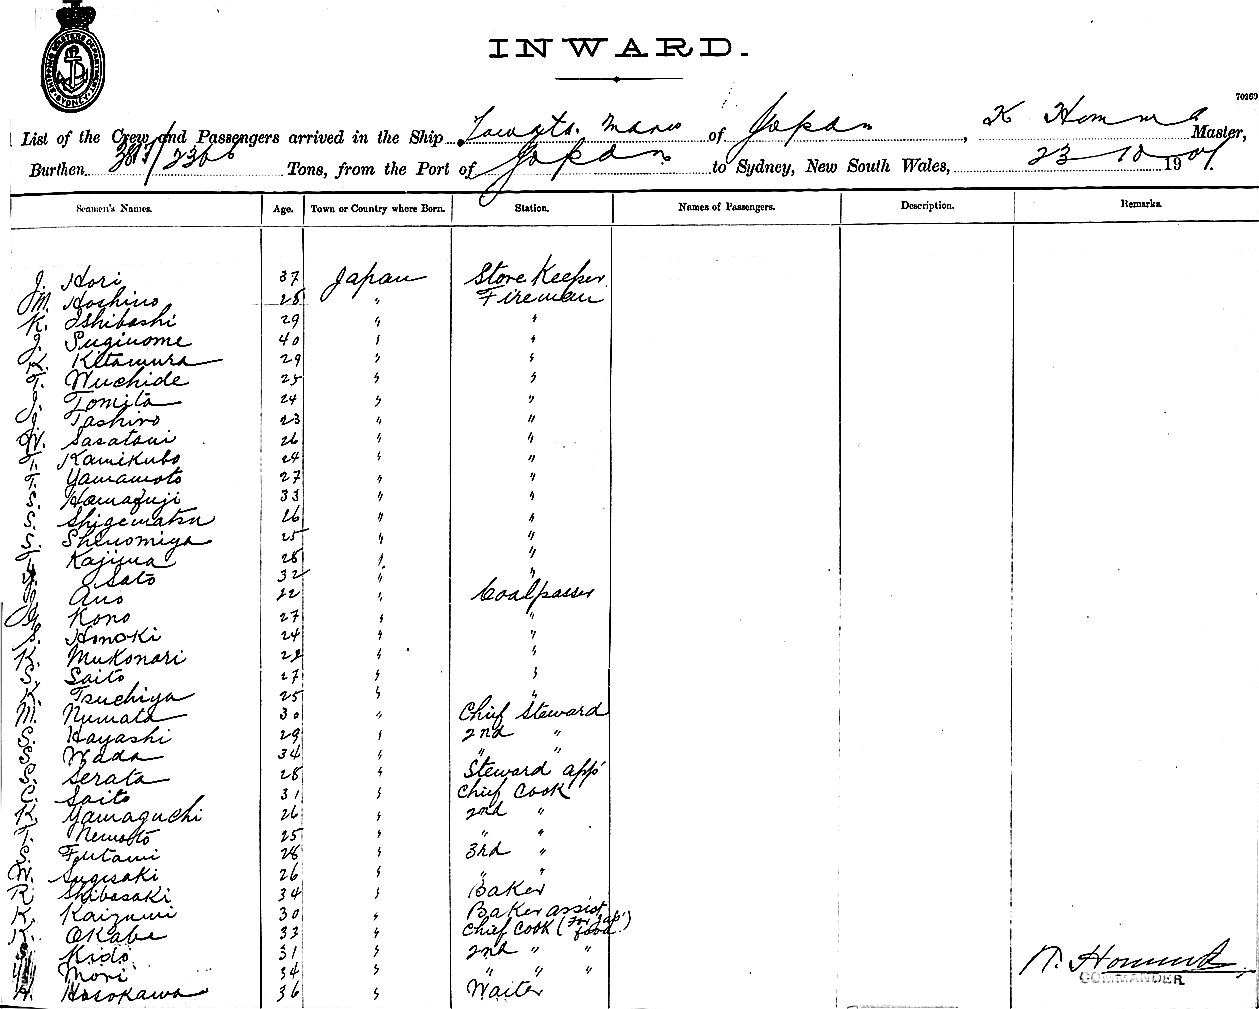 SHIPPING MASTER'S DEPARTMENT SYDNEY
INWARD.
70269
List of the Crew and Passengers arrived in the Ship Maru of Japan, K Homma Master,
Burthen 2366 Tons, from the Port of Japan to Sydney, New South Wales, 23-10-1901.
Seamen's Names. Age. Town or Country where Born. Station. Names of Passengers. Description. Remarks.
J. Hori 37 Japan Store Keeper
M. Hoshino 28 " Fireman
K. Ishibashi 29 " "
J. Suginome 40 " "
K. Kitamura 29 " "
T. Wuchide 25 " "
J. Tomita 24 " "
J. Tashiro 23 " "
Sasatani 26 " "
T. Kamikubo 24 " "
T. Yamamoto 27 " "
S. Hamafuji 33 " "
S. Shigematsu 26 " "
Shinomiya 25 " "
Kajiura 28 " "
Sato 32 " "
Ano 22 " Coalpasser
Kono 27 " "
S. Hinoki 24 " "
K. Mukonari 22 " "
S. Saito 27 " "
K. Tsuchiya 25 " "
M. Numata 30 " Chief Steward
S. Hayashi 29 " 2nd "
S. Wada 34 " " "
S. Serata 28 " Steward app
Saito 31 " Chief Cook
K. Yamaguchi 26 " 2nd "
T. Nemoto 25 " " "
S. Futami 28 " 3rd "
W. Sugisaki 26 " " "
R. Shibasaki 34 " Baker
K. Kaizumi 30 " Baker assist
K. Okabe 33 " Chief Cook (For Jap' food)
Kido 31 " 2nd " "
Mori 34 " " " "
H. Hosokawa 36 " Waiter
K. Homma
COMMANDER